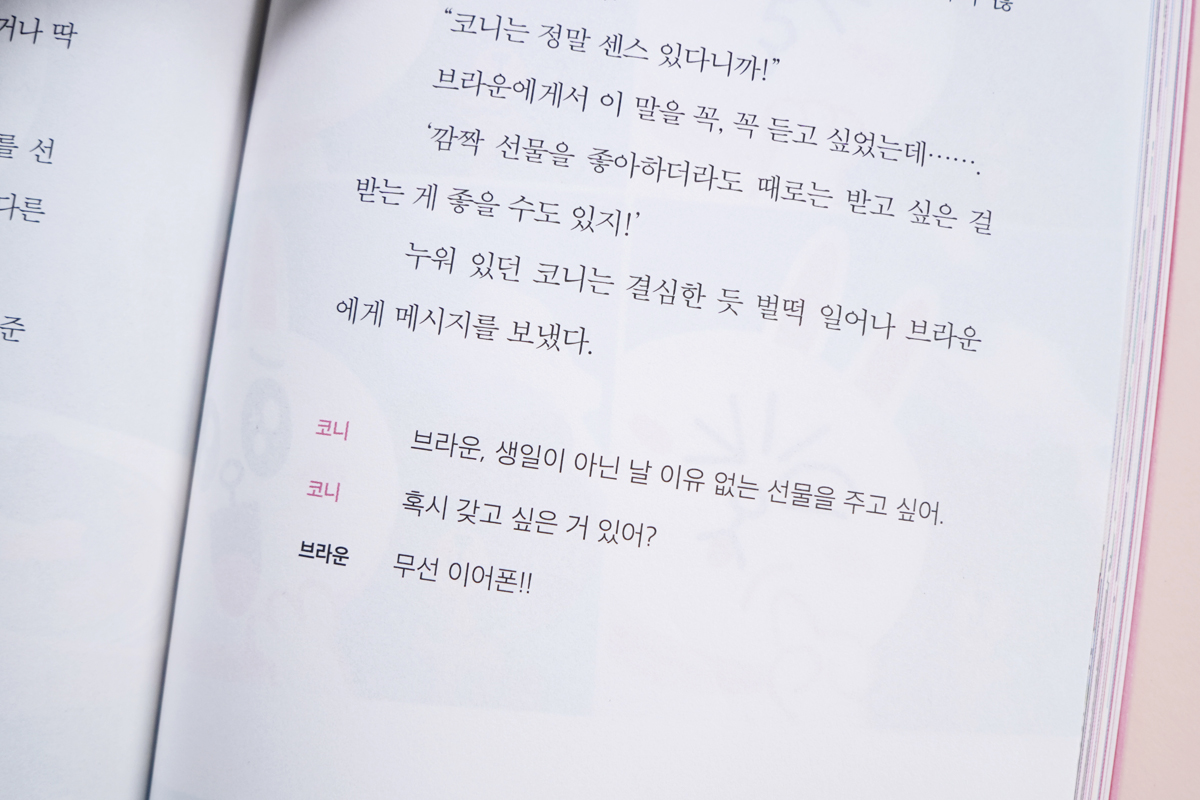 거나 딱
를 선
다른
준
“코니는 정말 센스 있다니까!”
브라운에게서 이 말을 꼭, 꼭 듣고 싶었는데…….
‘깜짝 선물을 좋아하더라도 때로는 받고 싶은 걸
받는 게 좋을 수도 있지!’
누워 있던 코니는 결심한 듯 벌떡 일어나 브라운
에게 메시지를 보냈다.
코니 브라운, 생일이 아닌 날 이유 없는 선물을 주고 싶어.
코니 혹시 갖고 싶은 거 있어?
브라운 무선 이어폰!!